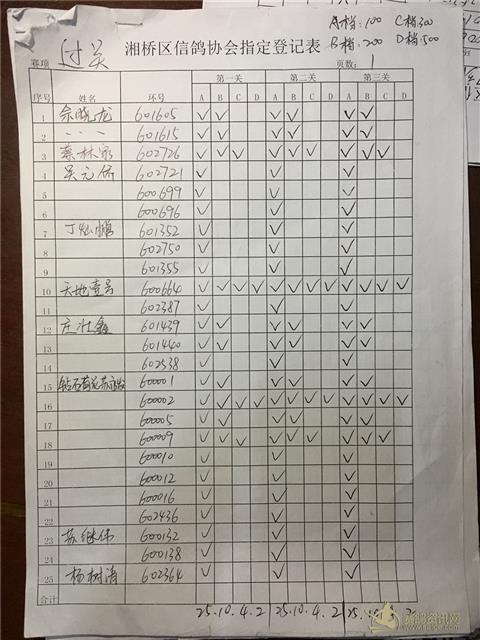 A档:100 C档300
湘桥区信鸽协会指定登记表 B档:200 D档:500
赛项 过关 页数: 1
序号 姓名 环号 第一关 第二关 第三关
A B C D A B C D A B C D
1 余晓龙 601605 ✓ ✓ ✓ ✓ ✓ ✓
2 、、、 601615 ✓ ✓ ✓ ✓ ✓ ✓
3 蔡林 602726 ✓ ✓ ✓ ✓ ✓ ✓ ✓ ✓ ✓
4 吴元侨 602721 ✓ ✓ ✓
5 600699 ✓ ✓ ✓
6 600696 ✓ ✓ ✓
7 丁灿鹏 601352 ✓ ✓ ✓
8 602750 ✓ ✓ ✓
9 601355 ✓ ✓ ✓
10 天地壹号 600664 ✓ ✓ ✓ ✓ ✓ ✓ ✓ ✓ ✓ ✓ ✓ ✓
11 602387 ✓ ✓ ✓
12 庄壮鑫 601439 ✓ ✓ ✓ ✓ ✓ ✓
13 601440 ✓ ✓ ✓ ✓ ✓ ✓
14 602538 ✓ ✓ ✓
15 钻石 600001 ✓ ✓ ✓ ✓ ✓ ✓
16 600002 ✓ ✓ ✓ ✓ ✓ ✓ ✓ ✓ ✓ ✓ ✓ ✓
17 600005 ✓ ✓ ✓ ✓ ✓ ✓
18 600009 ✓ ✓ ✓ ✓ ✓ ✓ ✓ ✓ ✓
19 600010 ✓ ✓ ✓
20 600012 ✓ ✓ ✓
21 600016 ✓ ✓ ✓
22 602436 ✓ ✓ ✓
23 苏继伟 600132 ✓ ✓ ✓
24 600138 ✓ ✓ ✓
25 杨树清 602364 ✓ ✓ ✓
合计 25.10.4.2 25.10.4.2 25.10